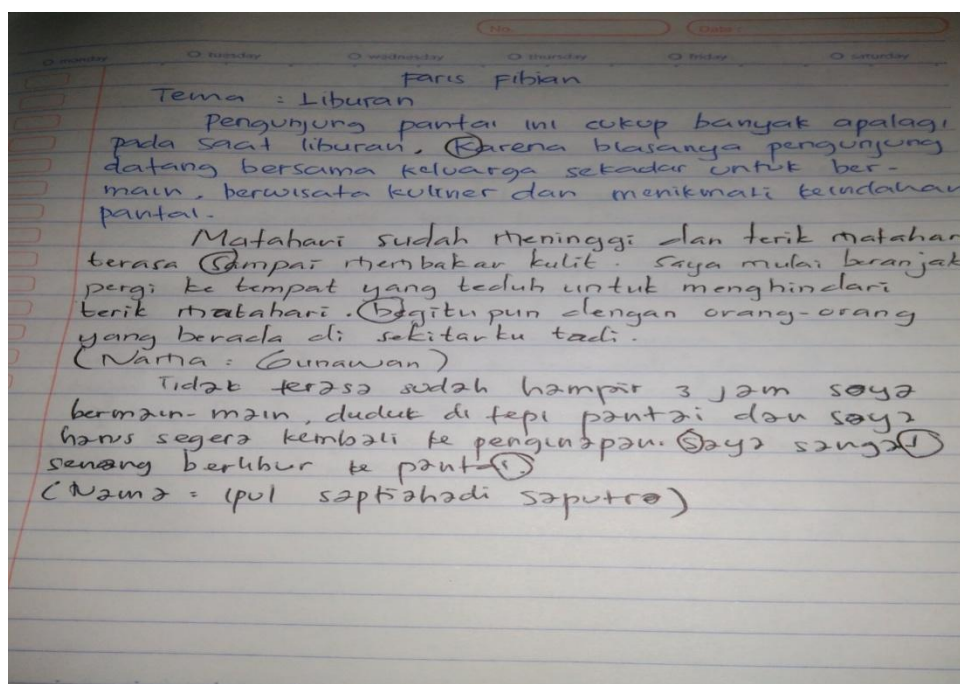 No. Date:
monday tuesday wednesday thursday friday saturday
Faris Fibian
Tema : Liburan
Pengunjung pantai ini cukup banyak apalagi
pada saat liburan. Karena biasanya pengunjung
datang bersama keluarga sekadar untuk ber-
main, berwisata kuliner dan menikmati keindahan
pantai.
Matahari sudah meninggi dan terik matahar
terasa sampai membakar kulit. Saya mulai beranjak
pergi ke tempat yang teduh untuk menghindari
terik matahari. begitupun dengan orang-orang
yang berada di sekitarku tadi.
(Nama : Gunawan)
Tidak terasa sudah hampir 3 jam saya
bermain-main, duduk di tepi pantai dan saya
harus segera kembali ke penginapan. Saya sanga
senang berlibur ke pantai.
(Nama = ipul saptiahadi saputra)